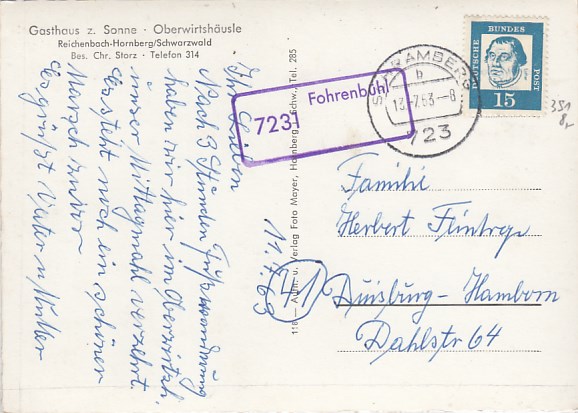 Gasthaus z. Sonne · Oberwirtshäusle
Reichenbach-Hornberg/Schwarzwald
Bes. Chr. Storz · Telefon 314
Ihr Lieben
Nach 3 Stunden Fußwanderung
haben wir hier im Oberwirtsh.
unser Mittagmahl verzehrt.
Es steht noch ein schöner
Marsch zurück
Es grüßt Vater u Mutter
11.7.63
118 – Aufn. u. Verlag Foto Mayer, Hornberg Schw., Tel. 285
7231 Fohrenbühl
SCHRAMBERG
b
13.-7.63.–8
723
DEUTSCHE BUNDES POST
15
351
8,-
Familie
Herbert Flintrop
41 Duisburg-Hamborn
Dahlstr 64